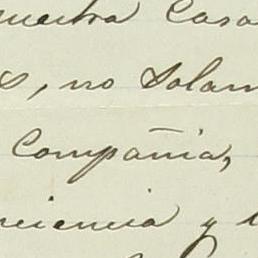 nuestra Casa
s, no Solam
Compañia,
ciencia y